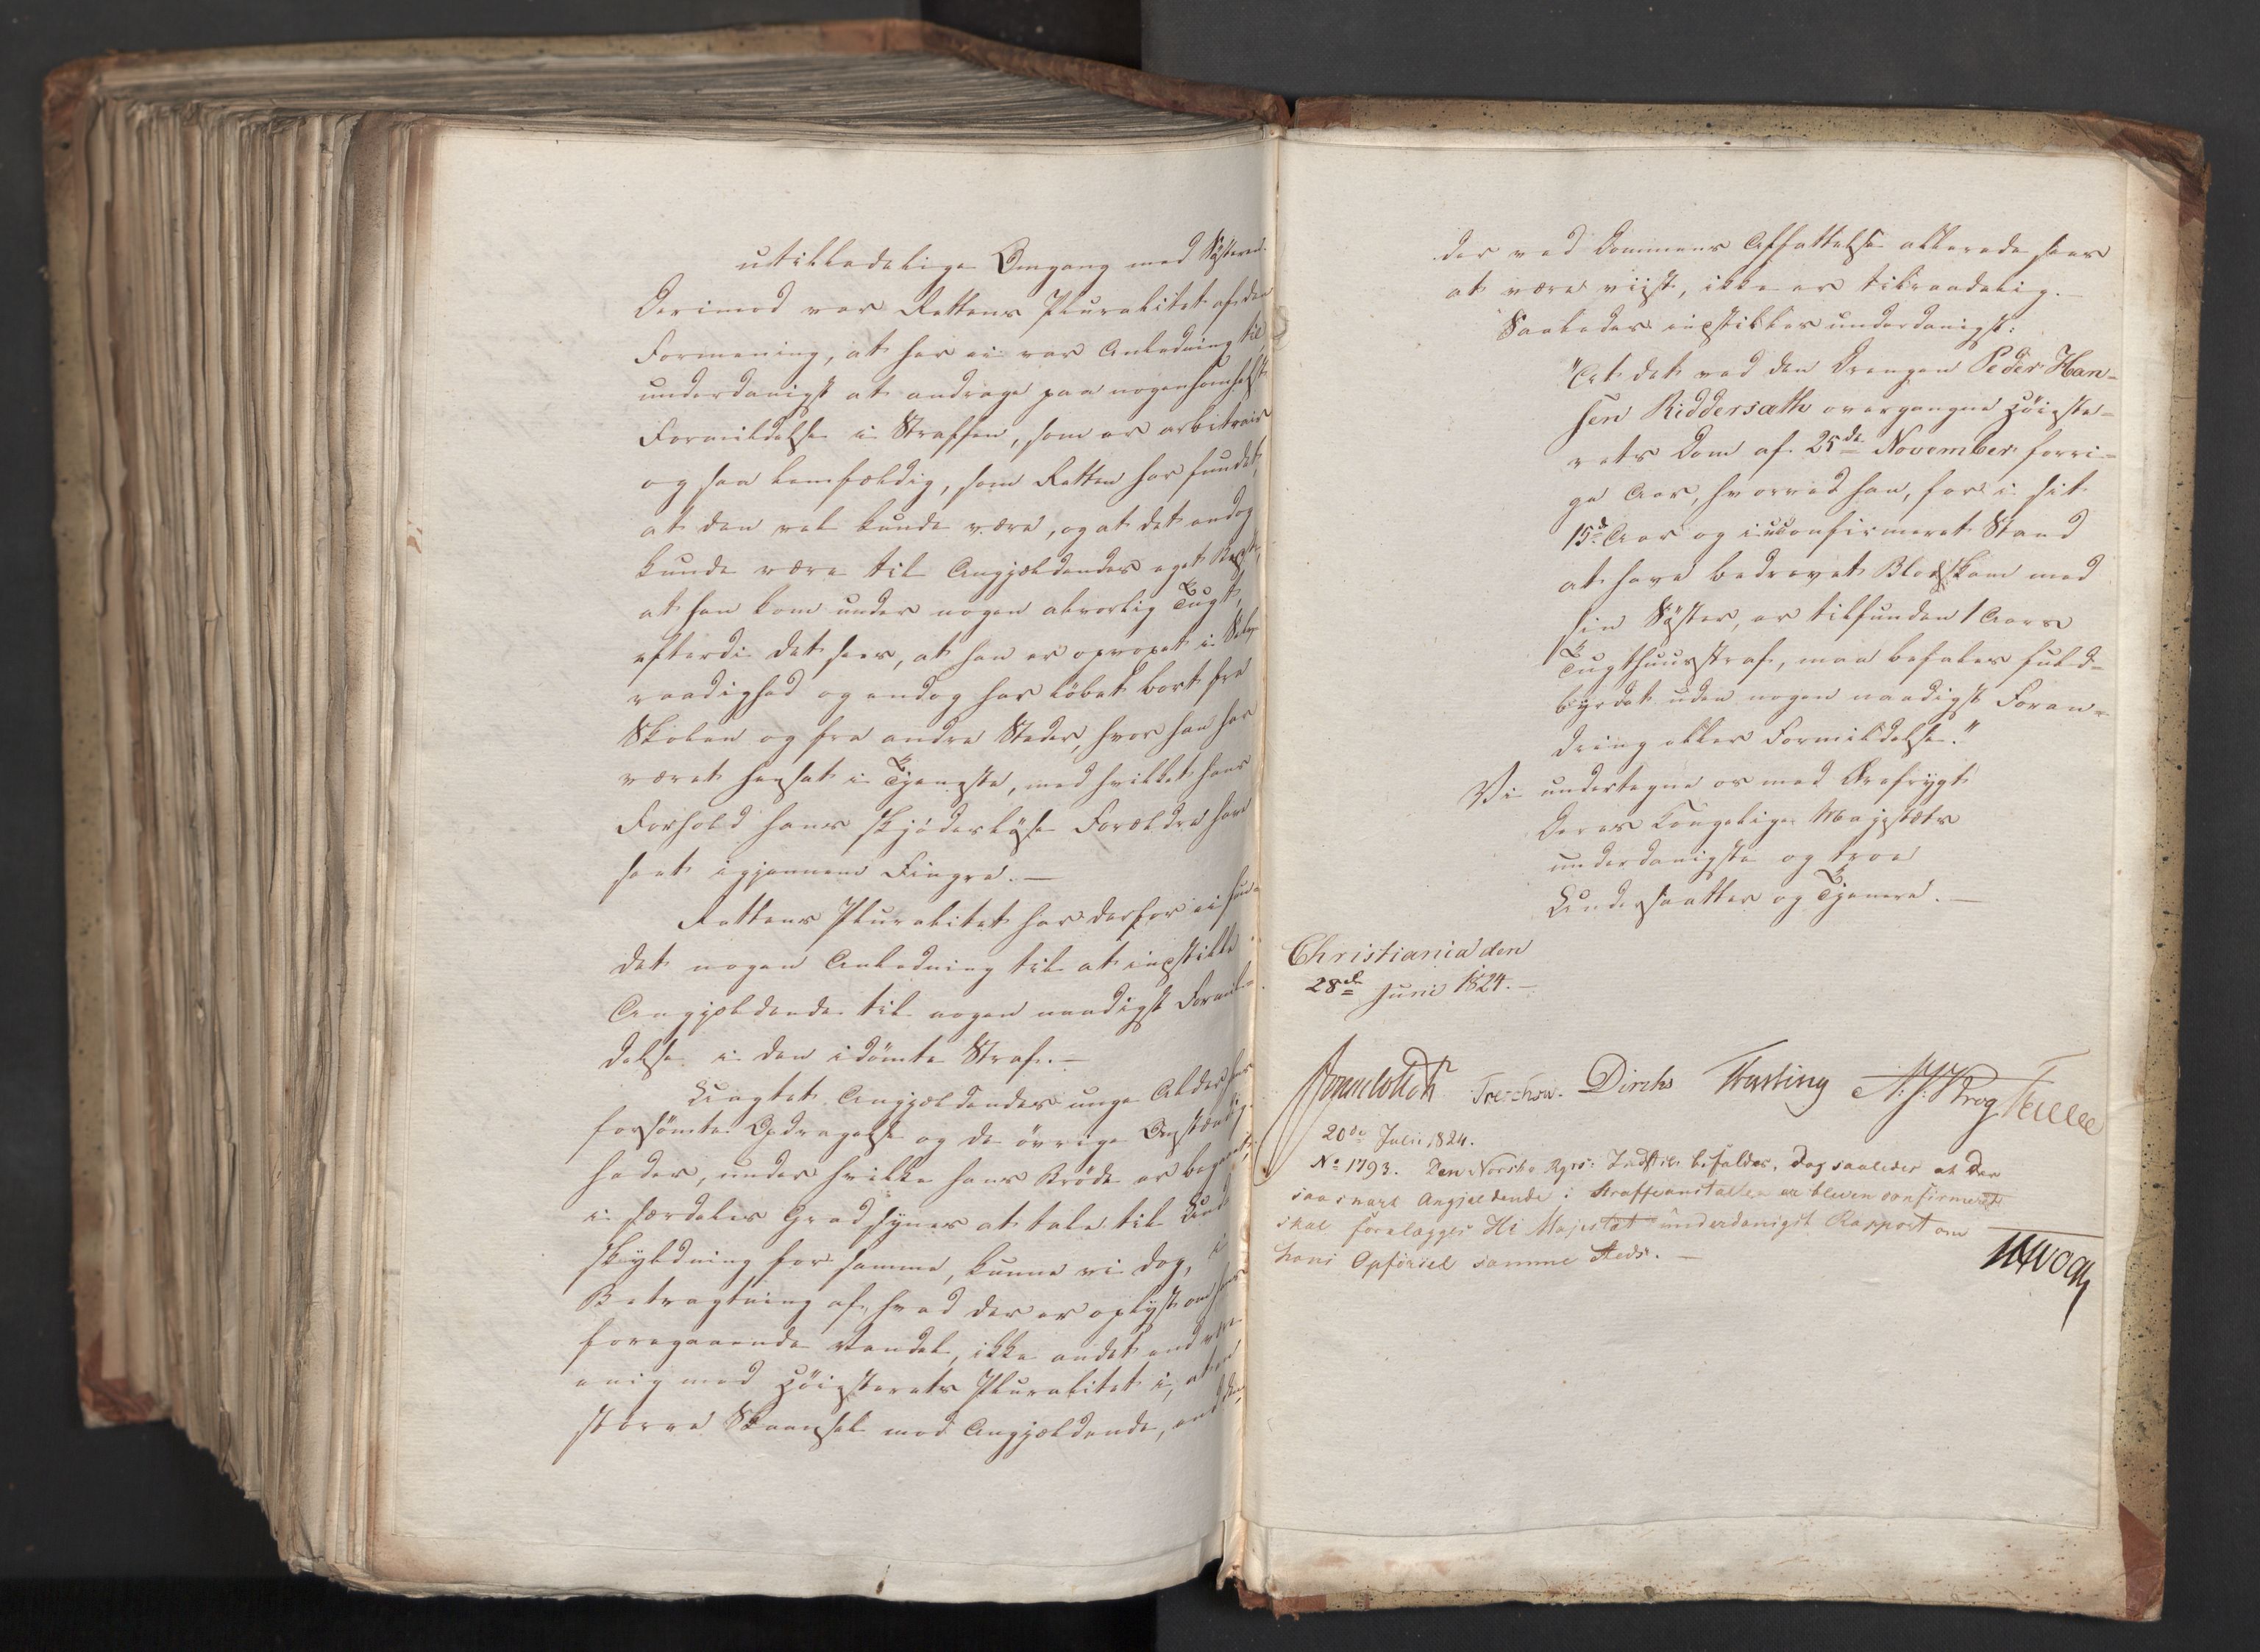 utilladelige Omgang med Systeren.
Derimod var Rettens Pluralitet af den
Formening, at her ei var Anledning til
underdanigst at andrage paa nogensomhelst
Formildelse i Straffen, som er arbitrair
og saa lemfældig, som Retten har fundet,
at den vel kunde være, og at det endog
kunde være til Angjældendes eget Bedste,
at han kom under nogen alvorlig Tugt,
efterdi det sees, at han er opvoxet i Selv-
raadighed og endog har løbet bort fra
Skolen og fra andre Steder, hvor han har
været hensat i Tjeneste, med hvilket hans
Forhold hans skjødesløse Forældre have
seet igjennem Fingre.—
Rettens Pluralitet har derfor ei fun-
det nogen Anledning til at indstille
Angjældende til nogen naadigst Formil-
delse i den idømte Straf.—
Uagtet Angjældendes unge Alder, hans
forsømte Opdragelse og de øvrige Omstændig-
heder, under hvilke hans Brøde er begaaet,
i særdeles Grad synes at tale til Und-
skyldning for samme, kunne vi dog, i
Betragtning af, hvad der er oplyst om hans
foregaaende Vandel, ikke andet end være
enig med Høiesterets Pluralitet i, at en
større Skaansel mod Angjældende, end den,
der ved Dommens Affattelse allerede sees
at være viist, ikke er tilraadelig.—
Saaledes indstilles underdanigst:
"At det ved den Drengen Peder Han-
sen Riddersæth overgangne Høieste-
rets Dom af 25de November forri-
ge Aar, hvorved han, for i sit
15de Aar og i uconfirmeret Stand
at have bedrevet Blodskam med
sin Syster, er tilfunden 1 Aars
Tugthuusstraf, maa befales fuld-
byrdet uden nogen naadigst Foran-
dring eller Formildelse."
Vi undertegne os med Ærefrygt
Deres Kongelige Majestæts
underdanigste og troe
Undersaatter og Tjenere.—
Christiania den
28de Juni 1824.—
Sommerhielm Treschow. Diriks Fasting N. J. Krog
20de Julii 1824.
No 1793. Den Norske Rgrs: Indstill: bifaldes, dog saaledes at der
saasnart Angjeldende i Straffeanstalten er bleven confirmeret
skal forelægges Hs Majestæt underdanigst Rapport om
hans Opförsel samme Steds.—